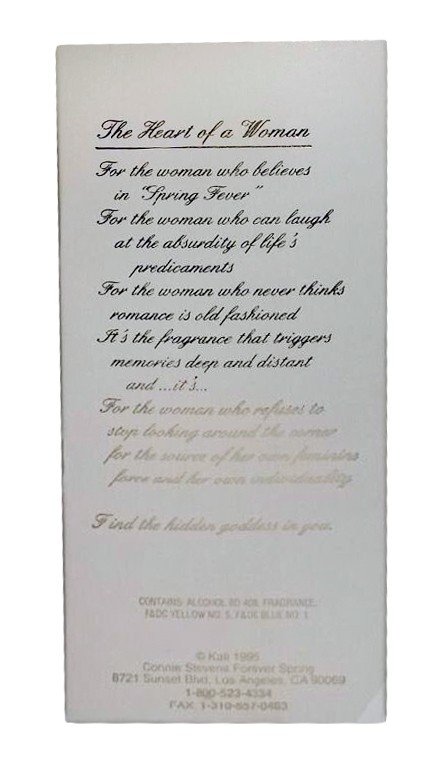 The Heart of a Woman
For the woman who believes
in "Spring Fever"
For the woman who can laugh
at the absurdity of life's
predicaments
For the woman who never thinks
romance is old fashioned
It's the fragrance that triggers
memories deep and distant
and ...it's...
For the woman who refuses to
stop looking around the corner
for the source of her own feminine
force and her own individuality
Find the hidden goddess in you.
CONTAINS: ALCOHOL SD 40B, FRAGRANCE,
F&DC YELLOW NO. 5, F&DC BLUE NO. 1
© Kali 1995
Connie Stevens Forever Spring
8721 Sunset Blvd, Los Angeles, CA 90069
1-800-523-4334
FAX 1-310-657-0463